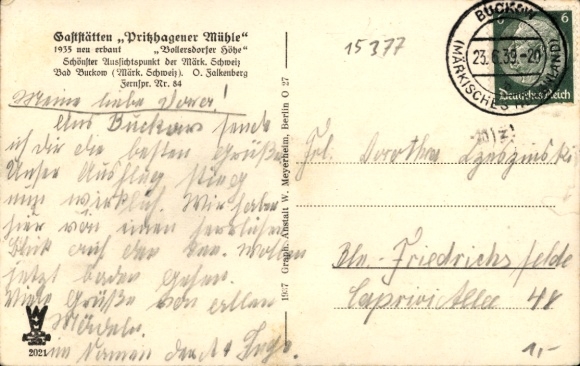 Gaststätten „Pritzhagener Mühle"
1935 neu erbaut „Bollersdorfer Höhe"
Schönster Aussichtspunkt der Märk. Schweiz
Bad Buckow (Märk. Schweiz). O. Falkenberg
Fernspr. Nr. 84
Meine liebe Dora!
Aus Buckow sende
ich dir die besten Grüße.
Unser Ausflug stieg
nun wirklich. Wir haben
hier von einen herrlichen
Blick auf den See. Wollen
jetzt baden gehen.
Viele Grüße von allen
Mädeln.
im Namen der
2021
1937 Graph. Anstalt W. Meyerheim, Berlin O 27
15377
BUCKOW
23.6.39.-20
(MÄRKISCHES
6
Deutsches Reich
Frl. Dorothea
Bln.-Friedrichsfelde
Caprivi Allee 48
1,-